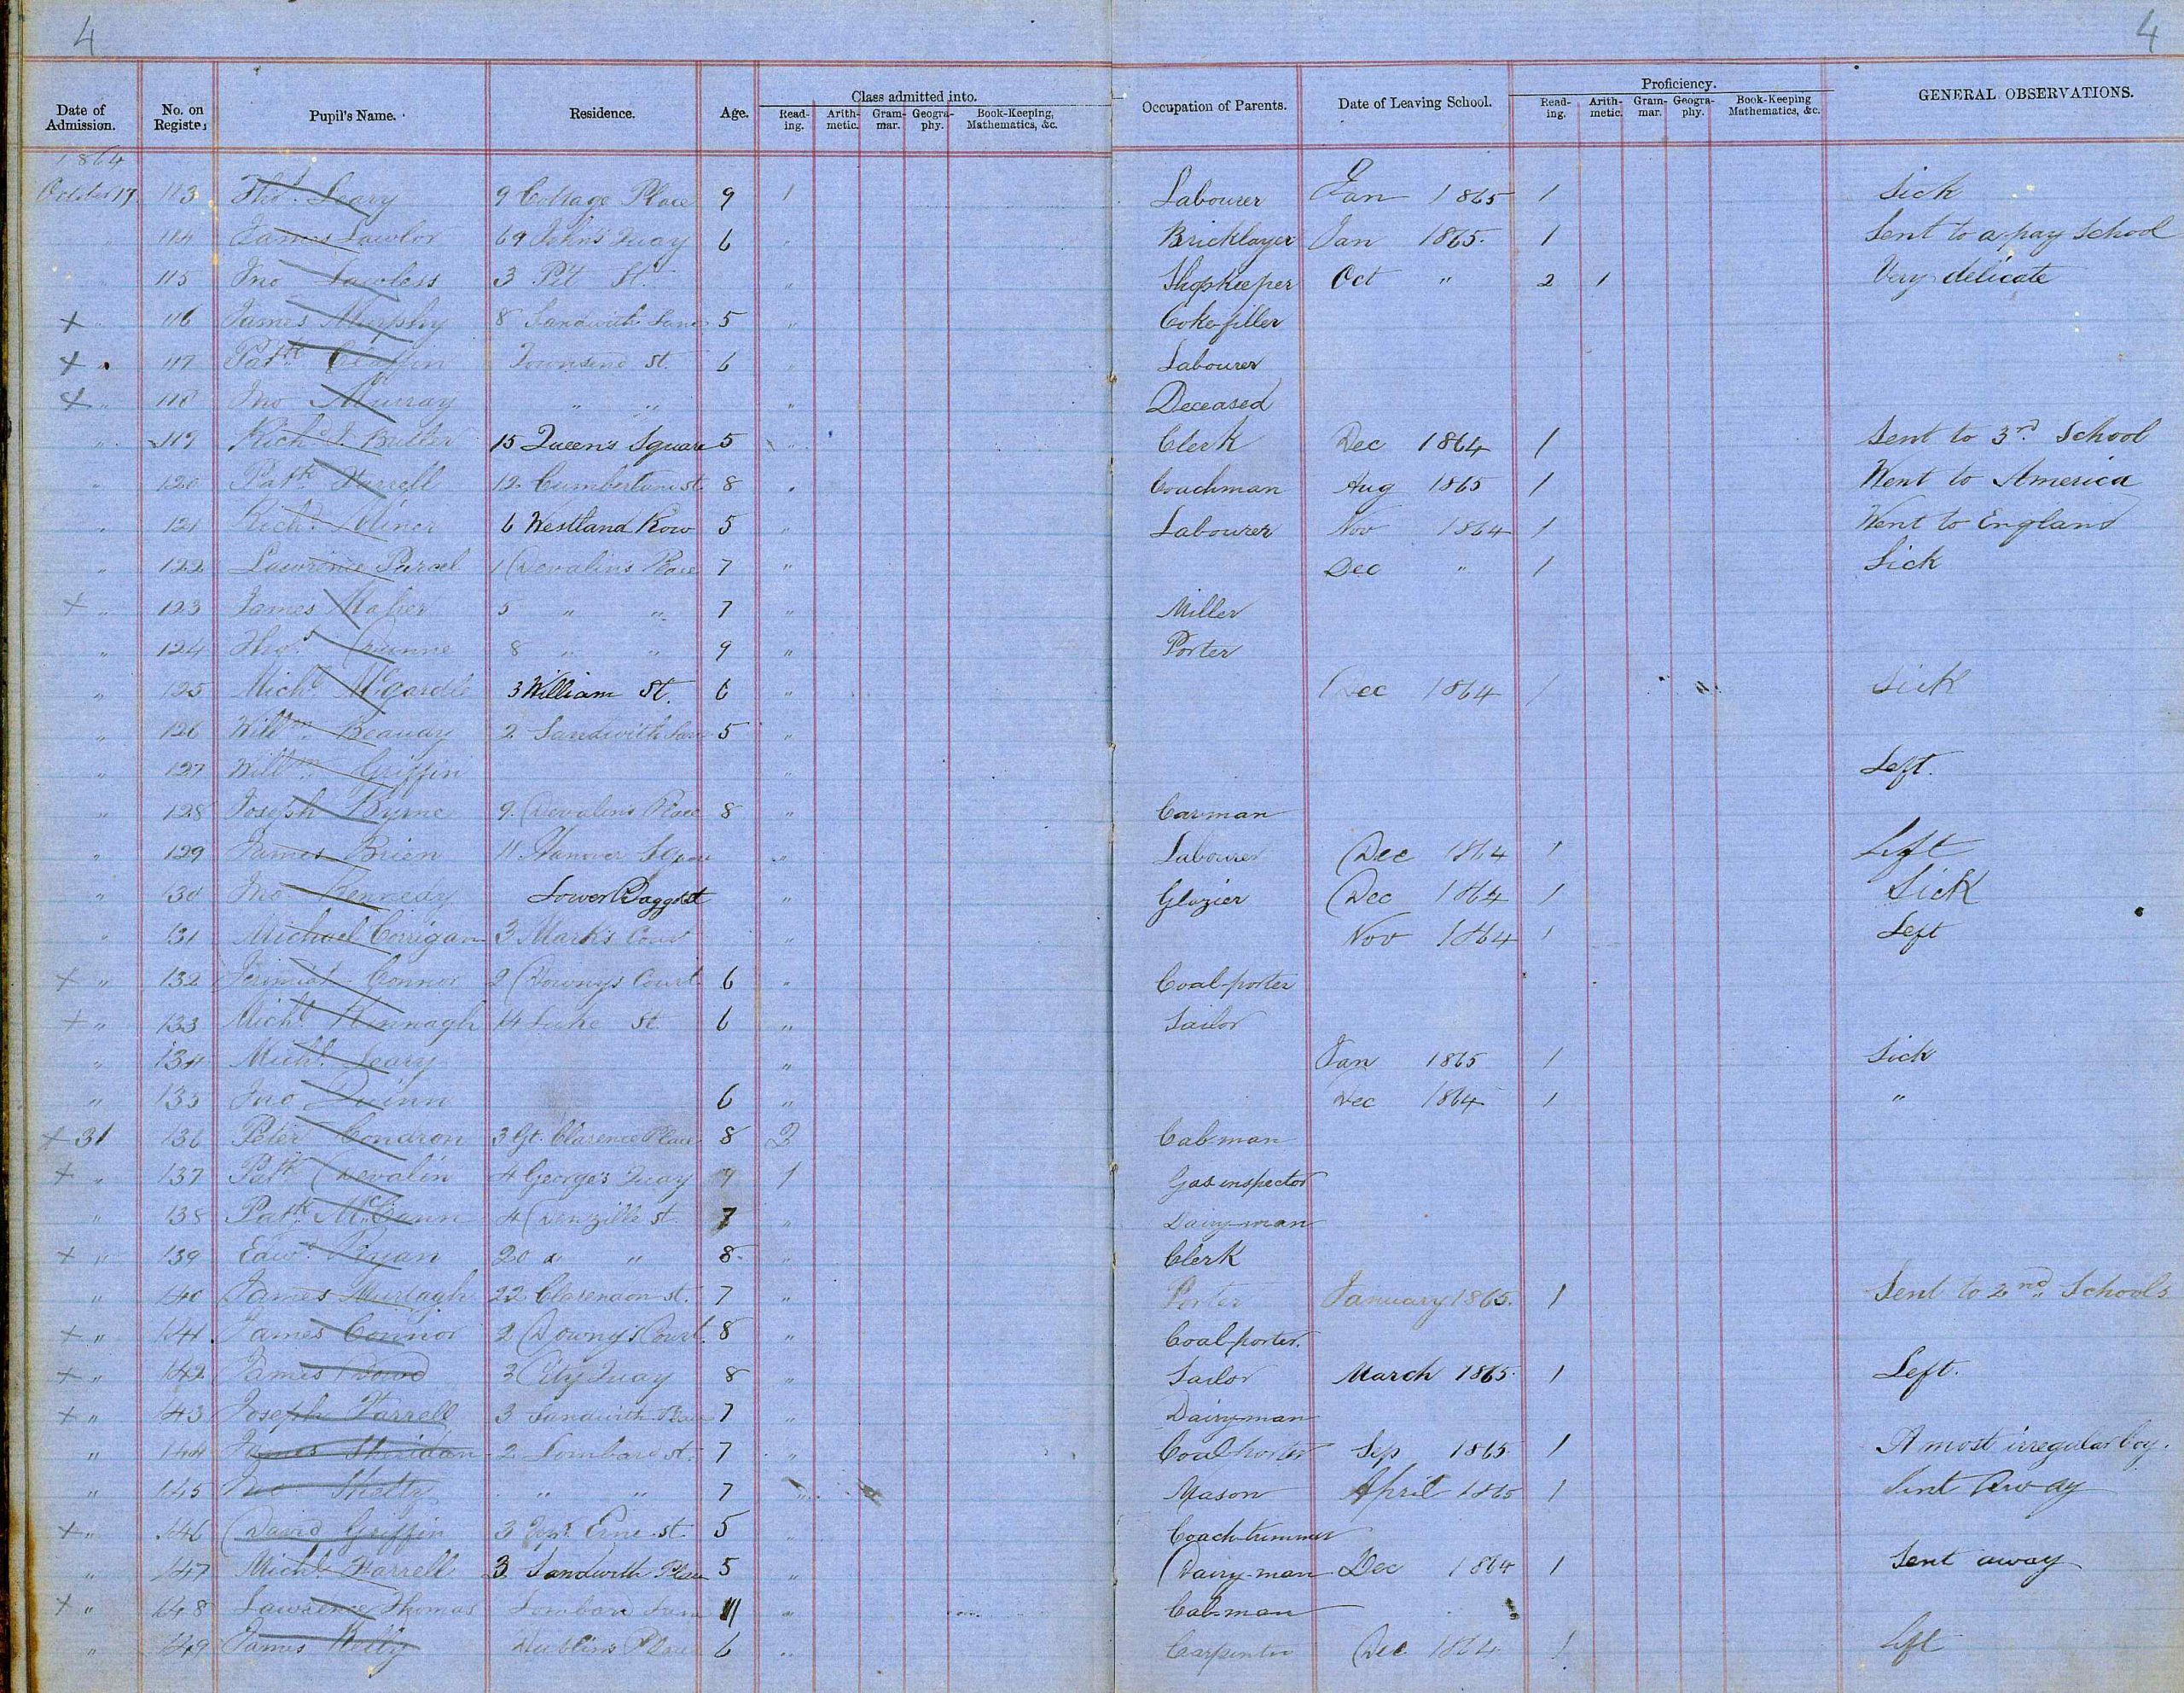 4 4
Date of Admission. No. on Register Pupil's Name. Residence. Age. Class admitted into. Read-ing. Arith-metic. Gram-mar. Geogra-phy. Book-Keeping, Mathematics, &c. Occupation of Parents. Date of Leaving School. Proficiency. Read-ing. Arith-metic. Gram-mar. Geogra-phy. Book-Keeping Mathematics, &c. GENERAL OBSERVATIONS.
1864
October 17 113 Thos. Leary 9 Cottage Place 9 1 Labourer Jan 1865 1 Sick
" 114 James Lawlor 69 John's Quay 6 " Bricklayer Jan 1865. 1 Sent to a pay School
" 115 Jno Lawless 3 Pit St. " Shopkeeper Oct " 2 1 Very delicate
+ " 116 James Murphy 8 Sandwith Lane 5 " Coke-filler
+ " 117 Patk Claffin Townsend St. 6 " Labourer
+ " 118 Jno Murray " " " Deceased
" 119 Richd J. Butler 15 Queen's Square 5 " Clerk Dec 1864 1 Sent to 3rd School
" 120 Patk Farrell 12 Cumberland st. 8 " Coachman Aug 1865 1 Went to America
" 121 Richd 6 Westland Row 5 " Labourer Nov 1864 1 Went to England
" 122 Lawrence Purcel 1 Devalin's Place 7 " Dec " 1 Sick
+ " 123 James Maher 5 " " 7 " Miller
" 124 Thos. Crunne 8 " " 9 " Porter
" 125 Michl McGardle 3 William St. 6 " Dec 1864 1 Sick
" 126 Willm Beauday 2 Sandwith Lane 5 "
" 127 Willm Griffin " Left.
" 128 Joseph Byrne 9. Devalin's Place 8 " Carman
" 129 James Brien 11 Hanover Square " Labourer Dec 1864 1 Left
" 130 Jno Kennedy Lower Baggot st " Glazier Dec 1864 1 Sick
" 131 Michael Corrigan 3 Mark's Court " Nov 1864 1 Left
+ " 132 Jeremiah Connor 2 Downy's Court 6 " Coal-porter
+ " 133 Michl Kinnagh 14 Luke St. 6 " Sailor
" 134 Michl. Leary " Jan 1865 1 Sick
" 135 Jno Quinn 6 " Dec 1864 1 "
+ 31 136 Peter Condron 3 Gt. Clarence Place 8 2 Cab-man
+ " 137 Patk Devalin 4 George's Quay 9 1 Gas inspector
" 138 Patk McGann 4 Denzille st. 7 " Dairy-man
+ " 139 Edwd. Ryan 20 " " 8 " Clerk
" 140 James Murtagh 22 Clarendon st. 7 " Porter January 1865. 1 Sent to 2nd Schools
+ " 141. James Connor 2 Downy's Court. 8 " Coal-porter.
+ " 142 James Dowd 3 City Quay 8 " Sailor March 1865. 1 Left.
+ " 143 Joseph Farrell 3 Sandwith Place 7 " Dairy-man
" 144 James Sheridan 2 Lombard st. 7 " Coal-porter Sep 1865 1 A most irregular boy.
" 145 Jno " " 7 " Mason April 1865 1 Sent away
+ " 146 David Griffin 3 Erne st. 5 " Coach-trimmer
" 147 Michl Farrell 3 Sandwith Place 5 " Dairy-man Dec 1864 1 Sent away
+ " 148 Lawrence Thomas Lombard Lane 11 " Cab-man
" 149 James Kelly Dublin's Place 6 " Carpenter Dec 1864 1 Left